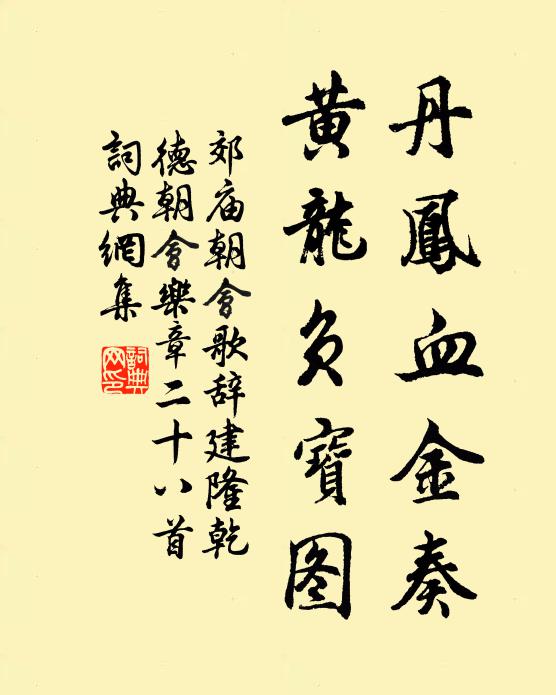 丹鳳血金奏
黄龍负寶图
郊庙朝會歌辞建隆乾
德朝會樂章二十八首
詞典網集
詞典网印